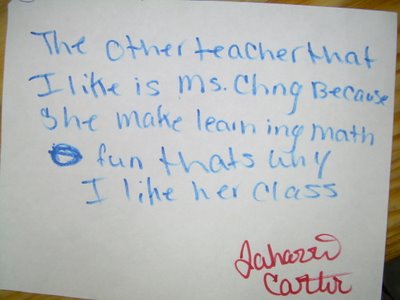 The other teacher that
I like is Ms. Chng Because
She make learning math
fun thats why
I like her class
Jaharri
Carter